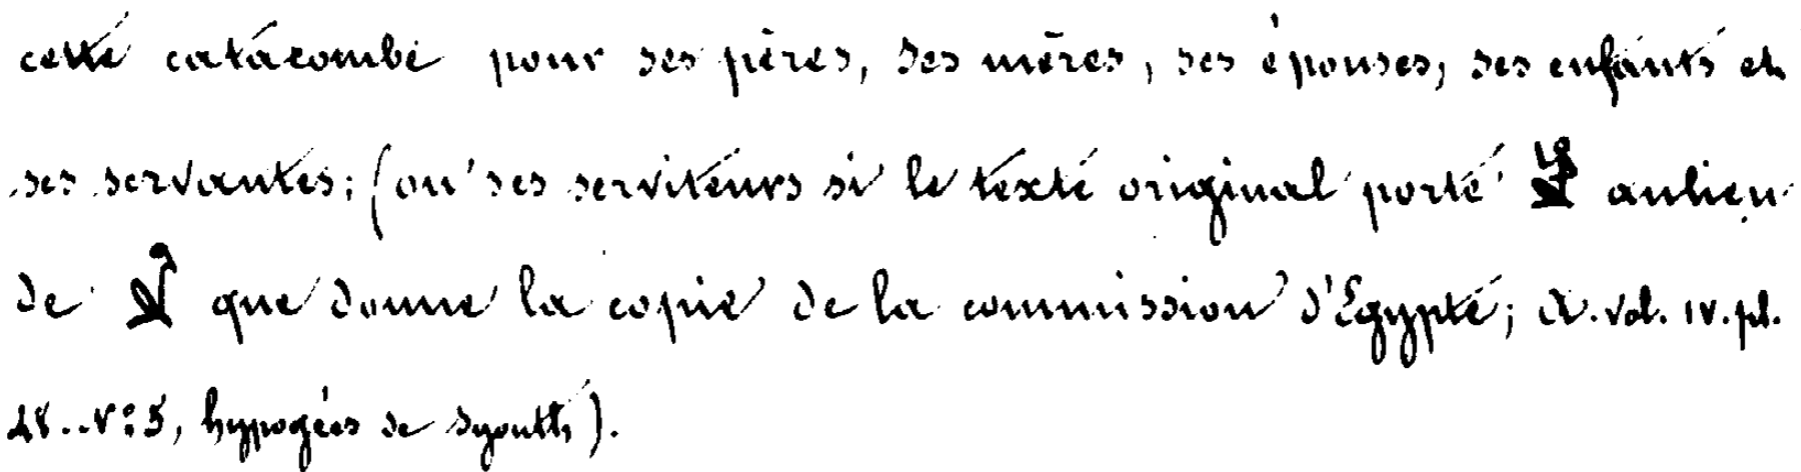 cette catacombe pour ses pères, ses mères, ses épouses, ses enfants et
ses servantes; (ou ses serviteurs si le texte original porte au lieu
de que donne la copie de la commission d'Egypte; A. vol. IV. pl.
48. N° 5, hypogées de Syouth).